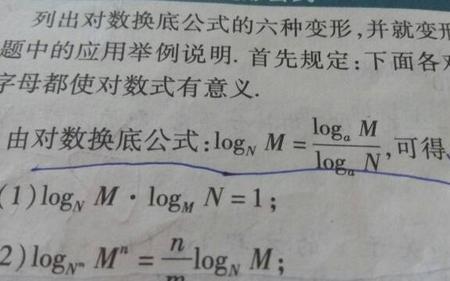 列出对数换底公式的六种变形,并就变形
题中的应用举例说明.首先规定:下面各对
字母都使对数式有意义.
由对数换底公式:log_N M = \frac{log_a M}{log_a N},可得
(1)log_N M · log_M N = 1;
2)log_{N^m} M^n = \frac{n}{m} log_N M;